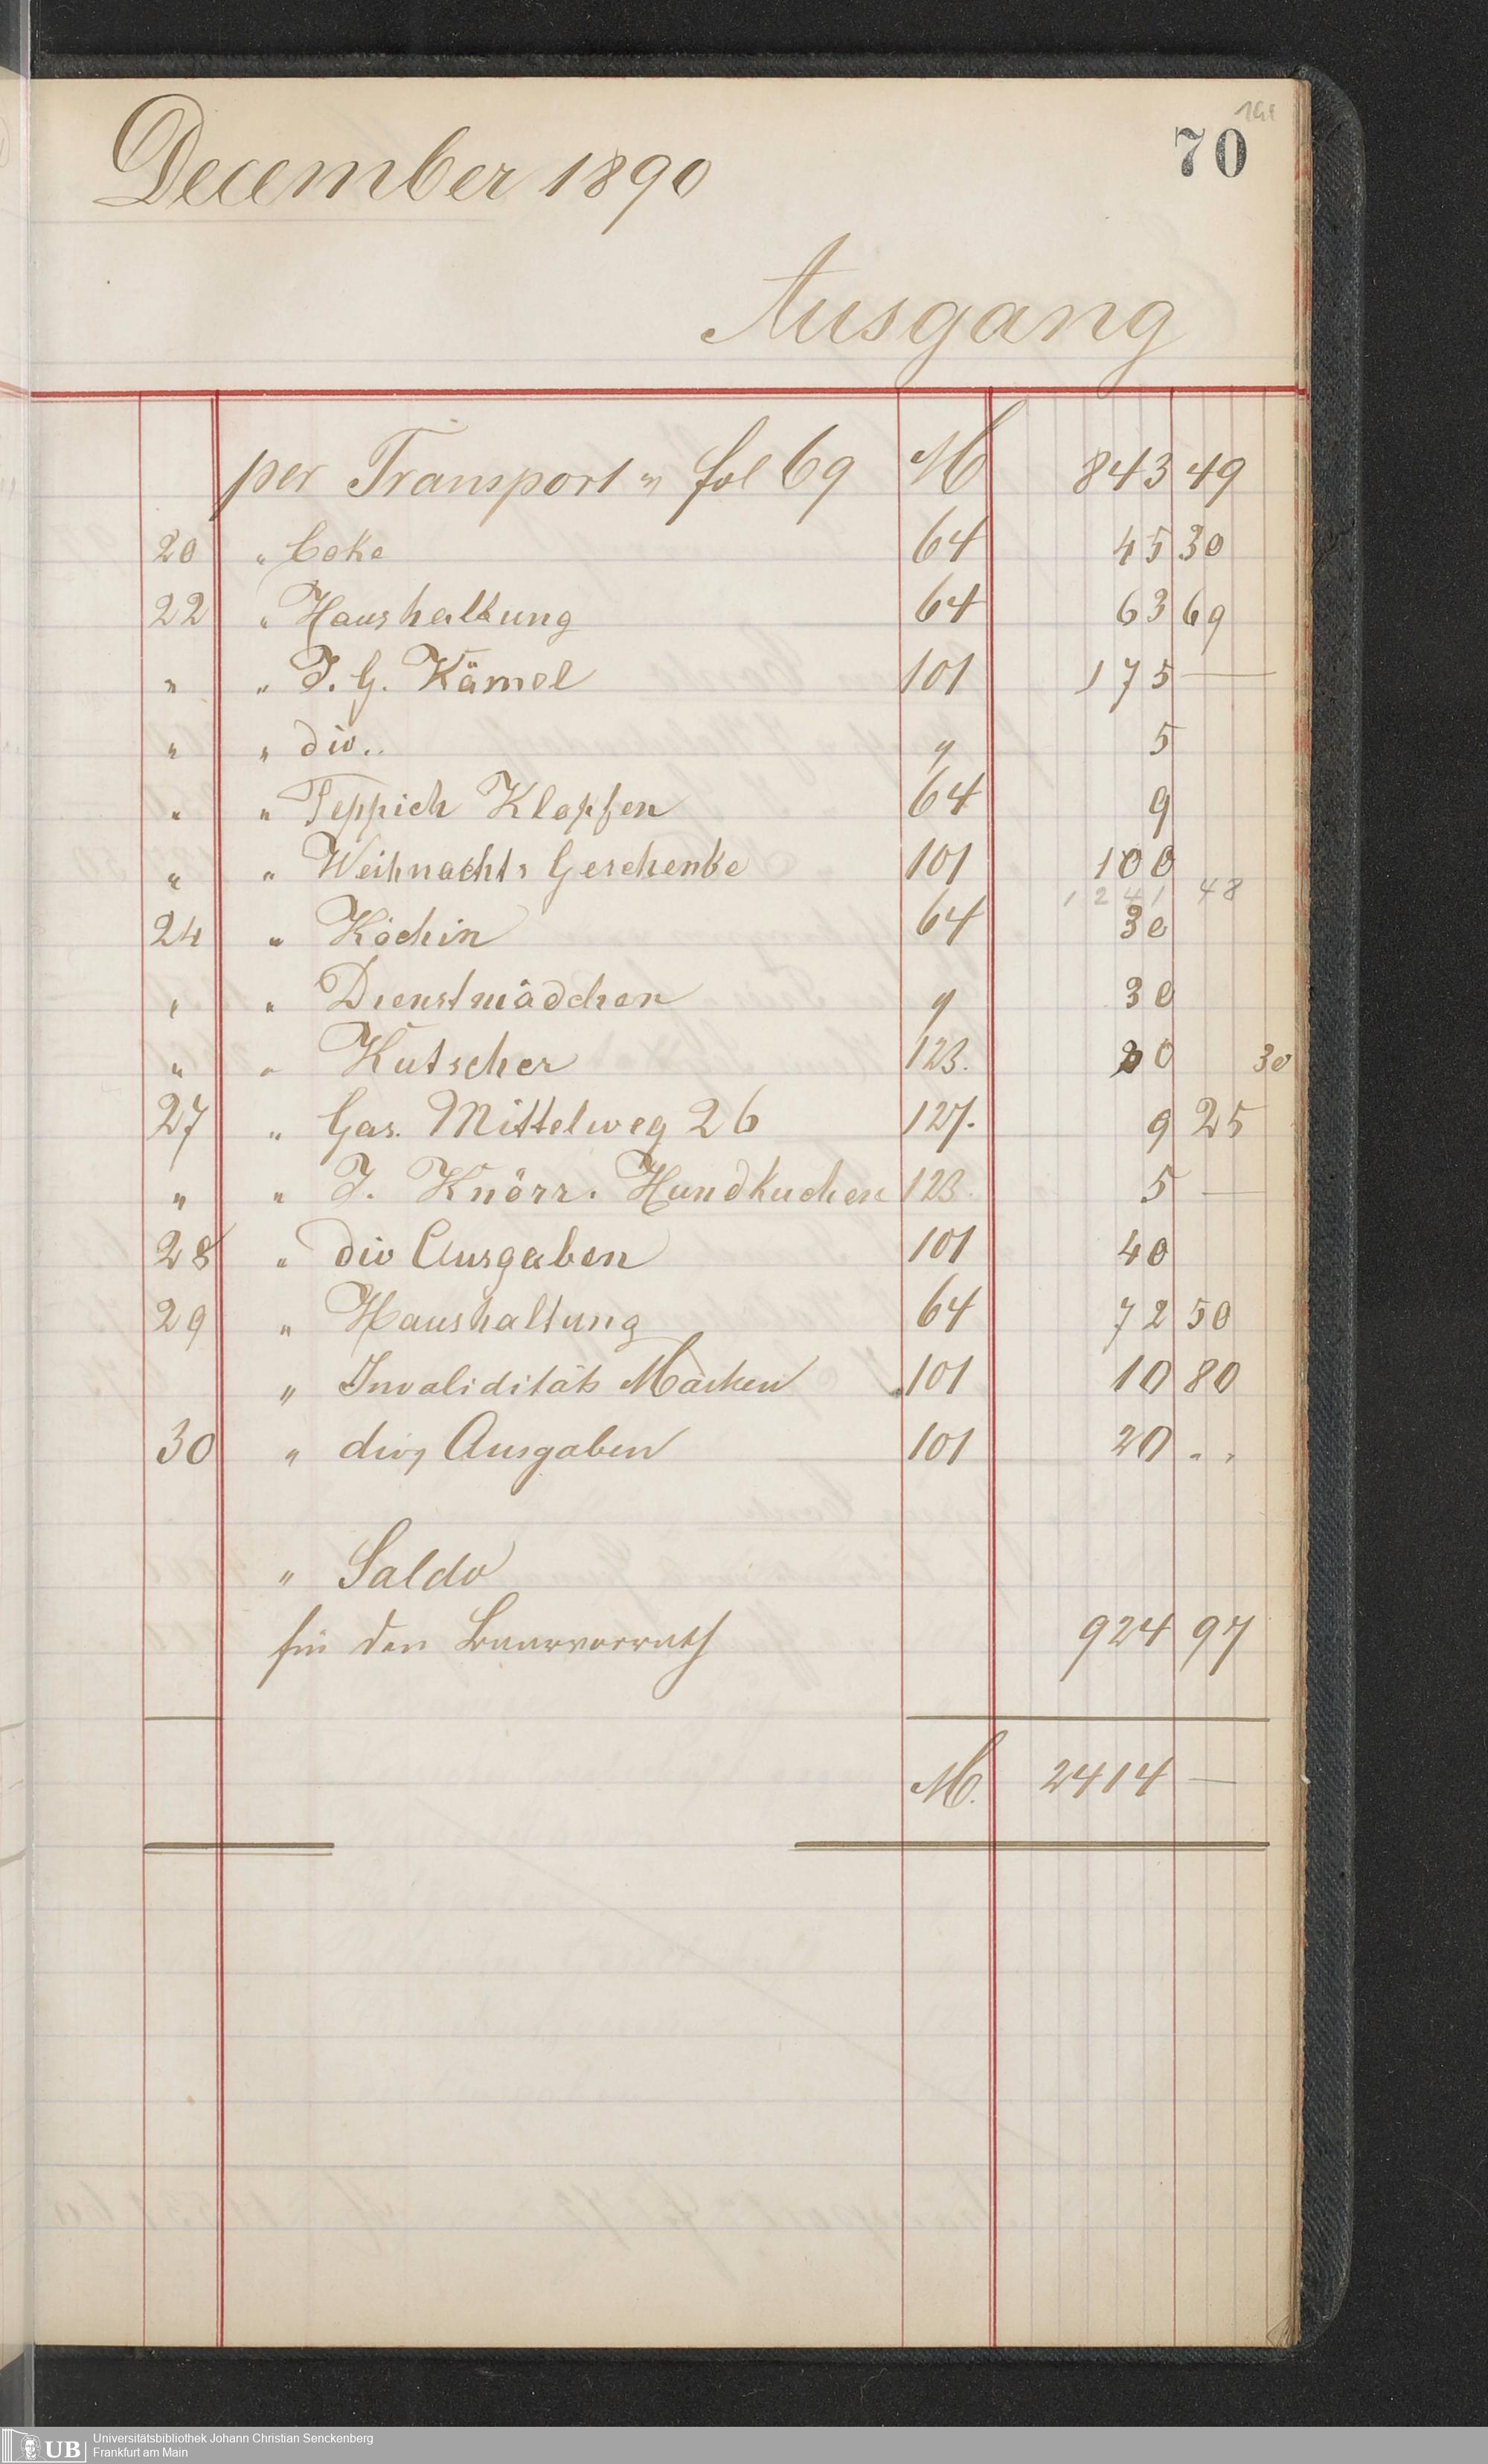 141
70
December 1890
Ausgang
per Transport v fol 69 M 843 49
20 " Coke 64 45 30
22 " Haushaltung 64 63 69
" " J. G. Kämel 101 175 —
" " div. " 5
" " Teppich Klopfen 64 9
" " Weihnachts Geschenke 101 100
1241 48
24 " Köchin 64 30
" " Dienstmädchen " 30
" " Kutscher 123. 30 30
27 " Gas. Mittelweg 26 127. 9 25
" " J. Knörr. Hundkuchen 123. 5 —
28 " div Ausgaben 101 40
29 " Haushaltung 64 72 50
" Invaliditäts Marken 101 10 80
30 " div, Ausgaben 101 20 " "
" Saldo
für den Baarvorrath 924 97
M. 2414 —
UB Universitätsbibliothek Johann Christian Senckenberg
Frankfurt am Main